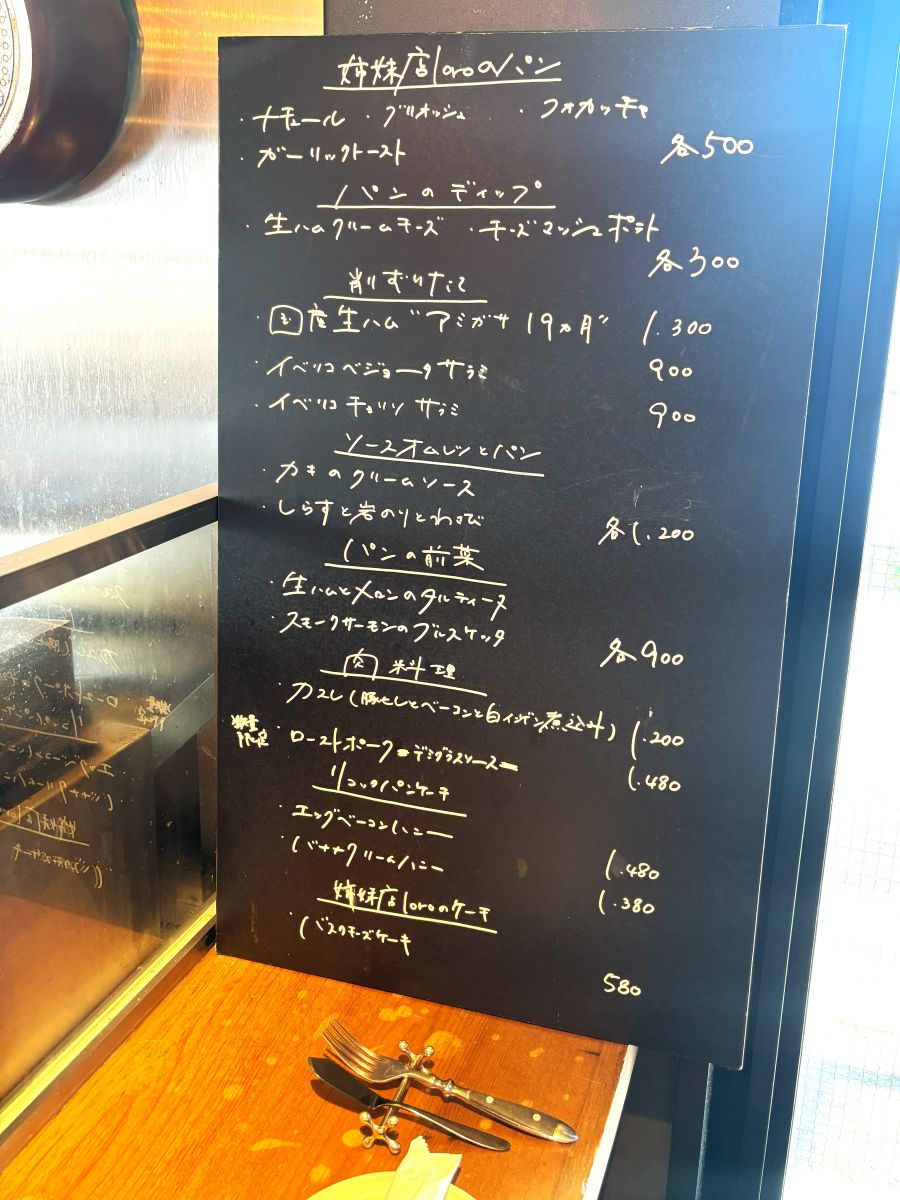 姉妹店loroのパン
・ナチュール ・ブリオッシュ ・フォカッチャ
・ガーリックトースト 各500
パンのディップ
・生ハムクリームチーズ ・チーズマッシュポテト
各300
削りたて
・国産生ハム"アミガサ 19ヵ月" 1.300
・イベリコベジョータサラミ 900
・イベリコチョリソサラミ 900
ソースオムレツとパン
・カキのクリームソース
・しらすと岩のりとわさび 各1.200
パンの前菜
・生ハムとメロンのタルティーヌ
・スモークサーモンのブルスケッタ 各900
肉料理
・カスレ(豚ヒレとベーコンと白インゲン煮込み) 1.200
数量限定 ・ローストポーク=デミグラスソース= 1.480
リコッタパンケーキ
・エッグベーコンハニー 1.480
・バナナクリームハニー 1.380
姉妹店loroのケーキ
・バスクチーズケーキ
580